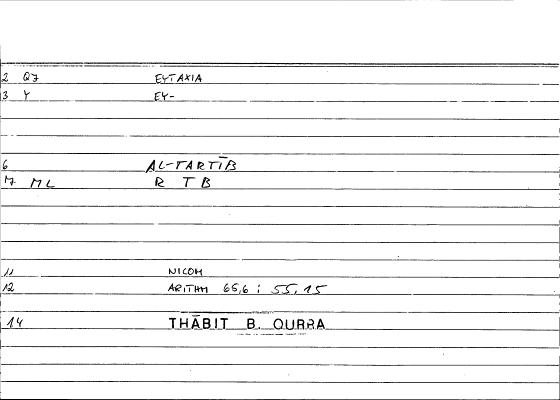 2 QJ EYTAXIA
3 Y EY-
6 AL-TARTĪB
ML R T B
11 NICOM
12 ARITHM 65,6 ; 55,15
14 THĀBIT B. QURRA